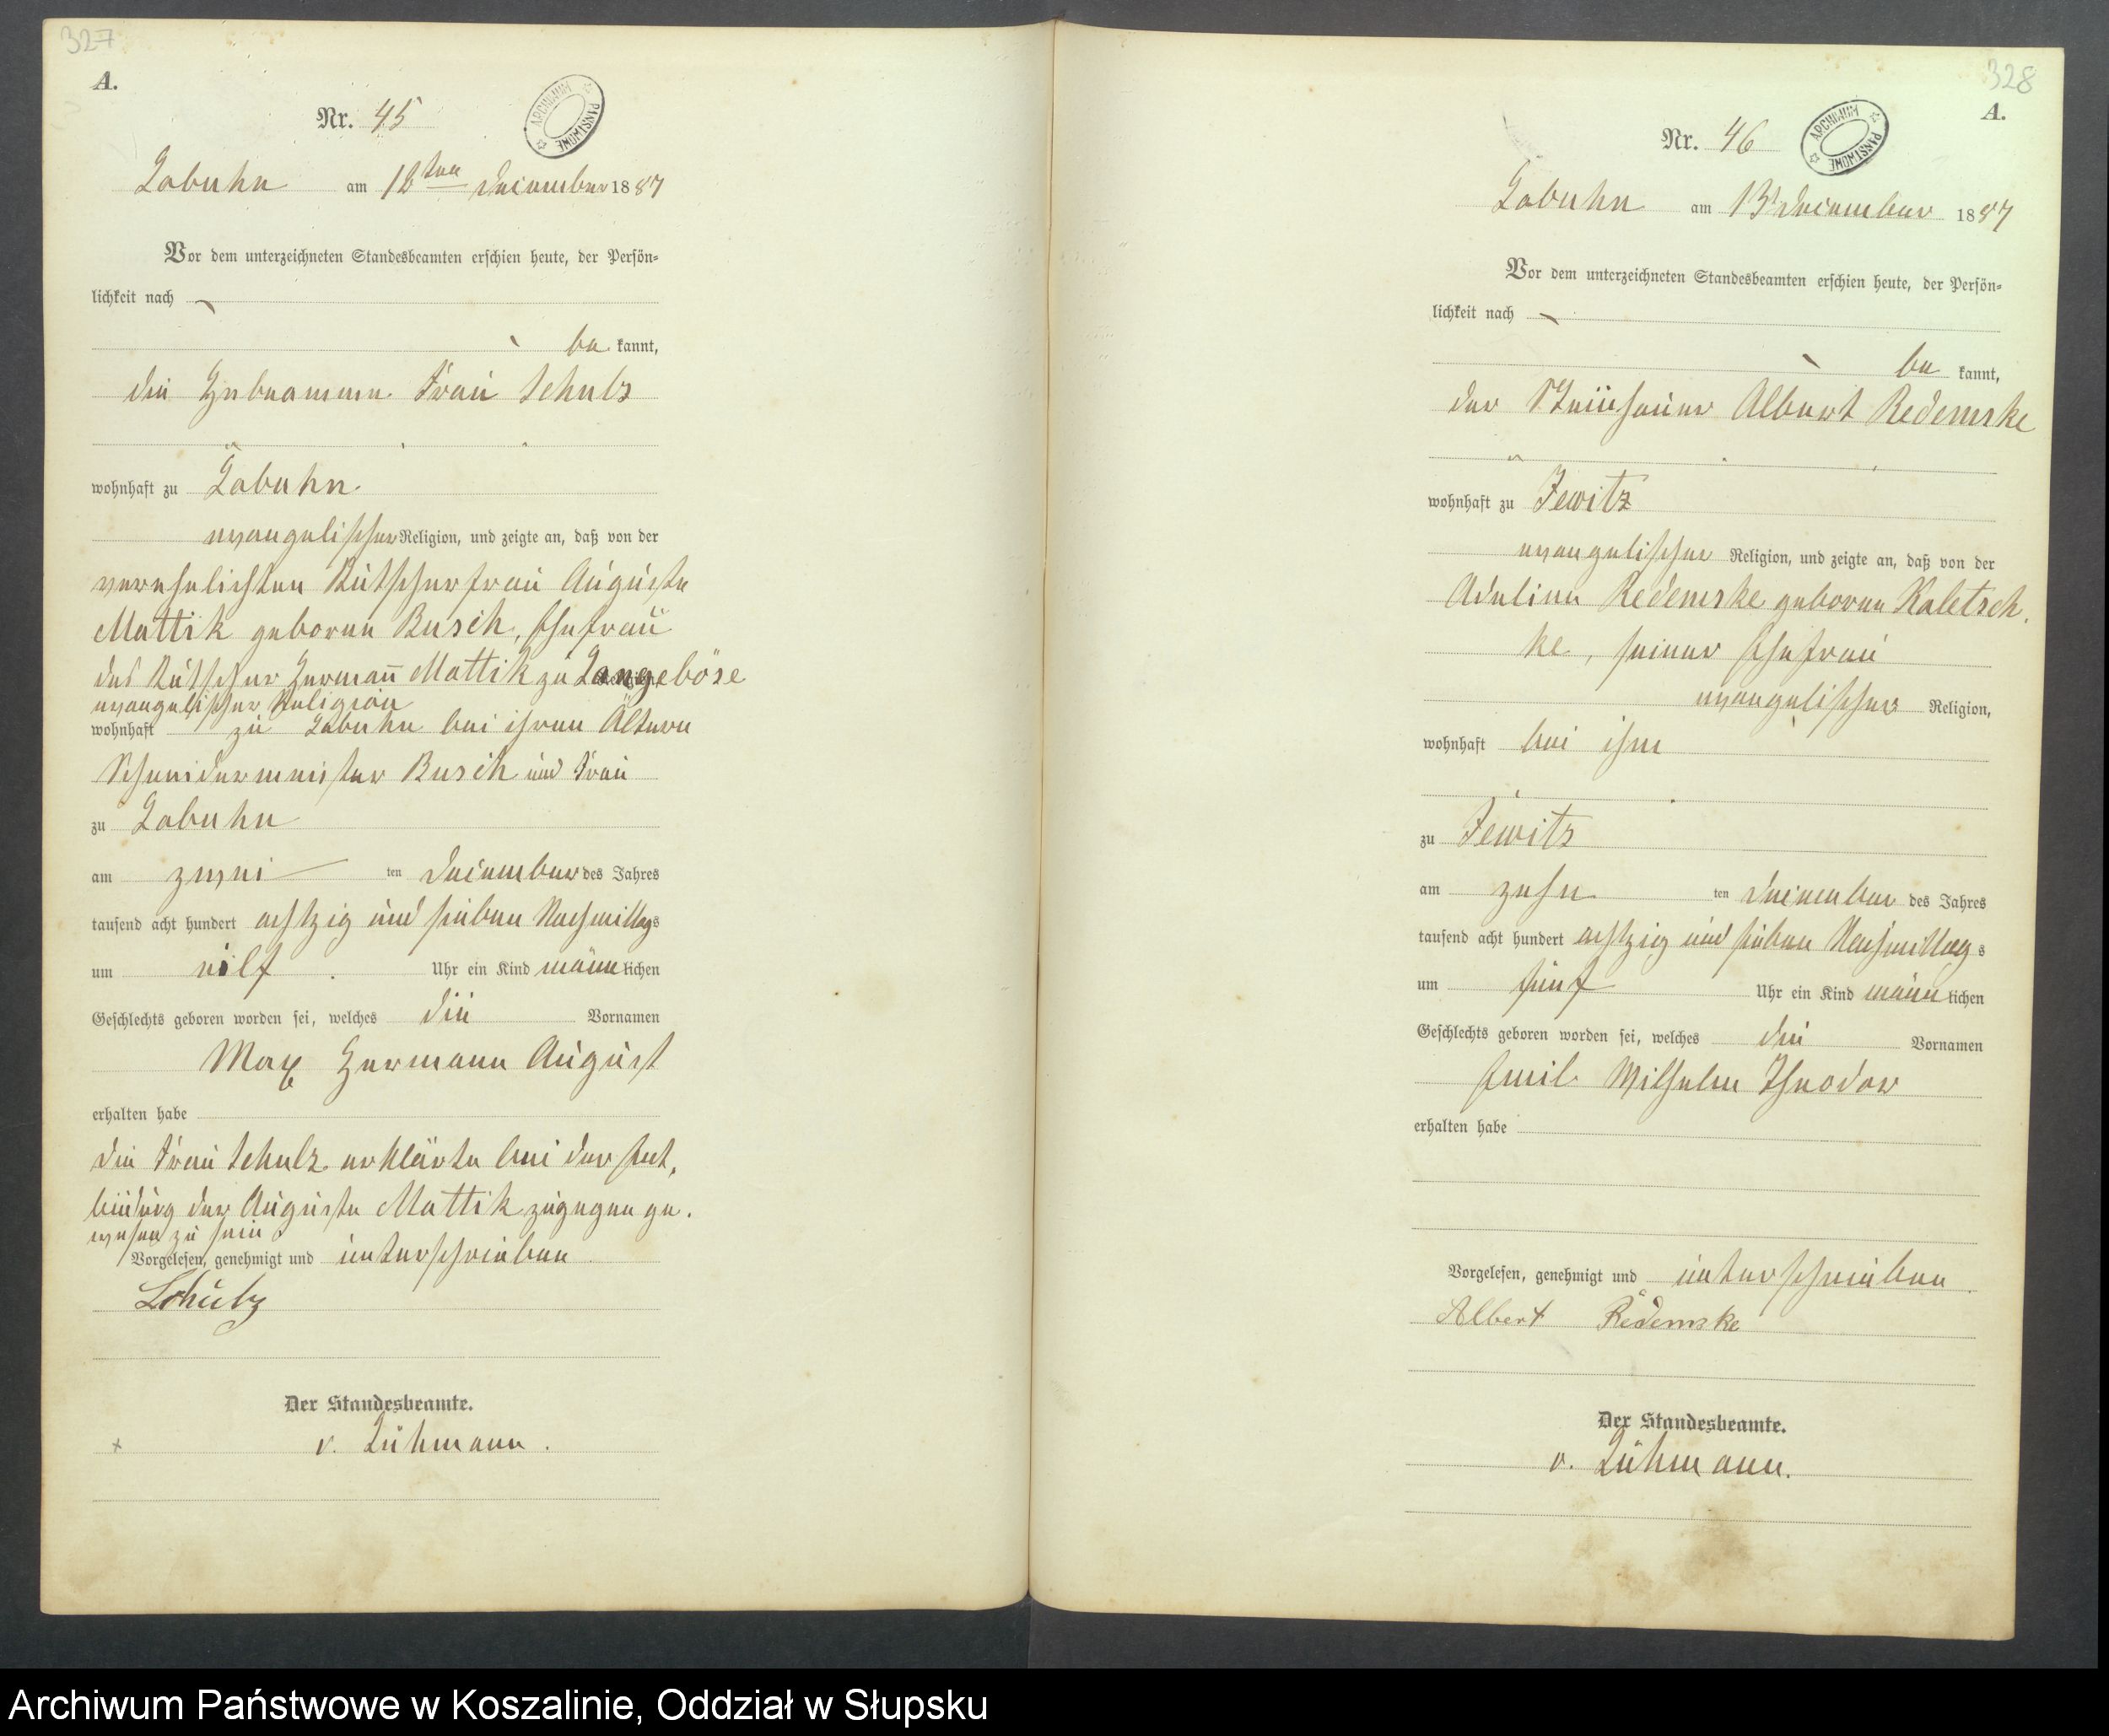 327
A.
Nr. 45
ARCHIWUM PAŃSTWOWE
Labuhn am 12ten December 1887
Vor dem unterzeichneten Standesbeamten erschien heute, der Persön-
lichkeit nach
be kannt,
die Hebeamme Frau Schulz
wohnhaft zu Labuhn
evangelischer Religion, und zeigte an, daß von der
verehelichten Kutscherfrau Auguste
Mattik geborene Busch, Ehefrau
des Kutscher Hermann Mattik zu Langeböse
evangelischer Religion
wohnhaft zu Labuhn bei ihren Ältern
Schneidermeister Busch und Frau
zu Labuhn
am zwei ten December des Jahres
tausend acht hundert achtzig und sieben Nachmittags
um eilf Uhr ein Kind männlichen
Geschlechts geboren worden sei, welches die Vornamen
Max Hermann August
erhalten habe
die Frau Schulz erklärte bei der Ent-
bindung der Auguste Mattik zugegen ge-
wesen zu sein
Vorgelesen, genehmigt und unterschrieben
Schulz
Der Standesbeamte.
v. Lühmann.
328
A.
Nr. 46
ARCHIWUM PAŃSTWOWE
Labuhn am 13t December 1887
Vor dem unterzeichneten Standesbeamten erschien heute, der Persön-
lichkeit nach
be kannt,
der Albert Redemske
wohnhaft zu Jewitz
evangelischer Religion, und zeigte an, daß von der
Adeline Redemske geborene Kaletsch-
ke, seiner Ehefrau
evangelischer Religion,
wohnhaft bei ihm
zu Jewitz
am zehn ten December des Jahres
tausend acht hundert achtzig und sieben Nachmittags
um fünf Uhr ein Kind männlichen
Geschlechts geboren worden sei, welches die Vornamen
Emil Wilhelm Theodor
erhalten habe
Vorgelesen, genehmigt und unterschrieben
Albert Redemske
Der Standesbeamte.
v. Lühmann.
Archiwum Państwowe w Koszalinie, Oddział w Słupsku